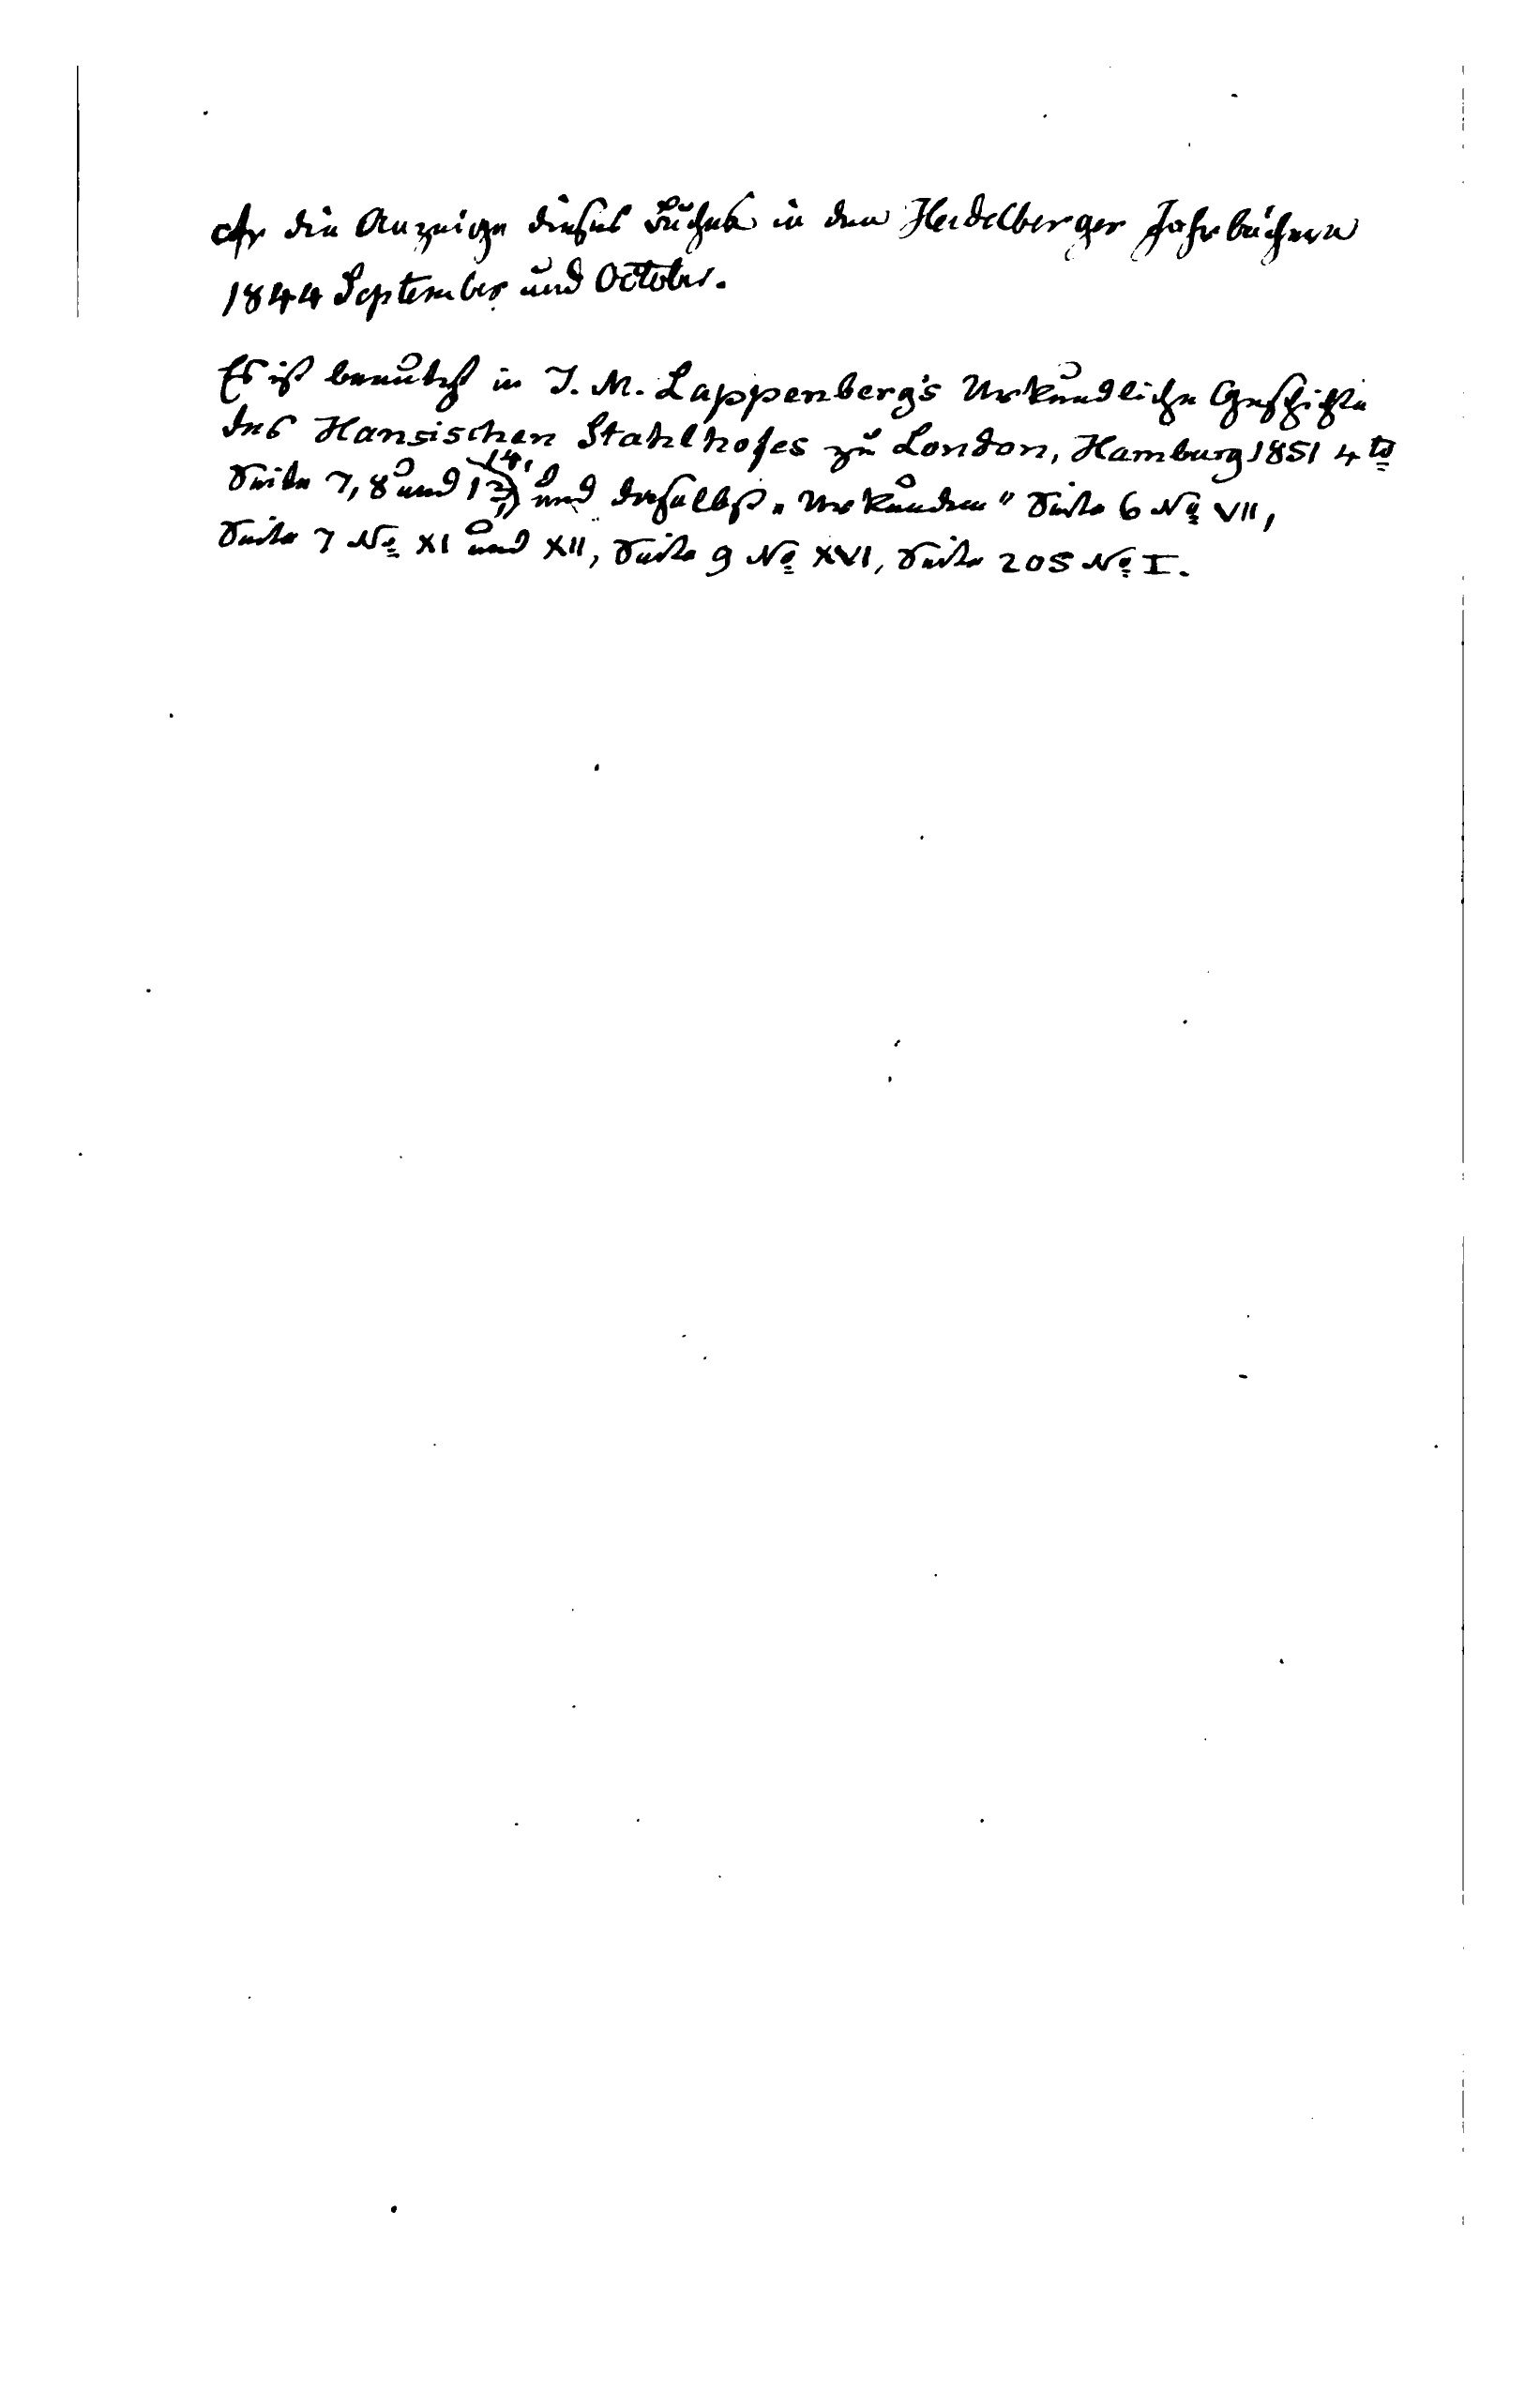 cfr die Anzeige dieses Buches in den Heidelberger Jahrbüchern
1844 September und October.
Es ist benutzt in J. M. Lappenberg's Urkundliche Geschichte
des Hansischen Stahlhofes zu London, Hamburg 1851 4to
Seite 7, 8 und 14, und daselbst „Urkunden" Seite 6 No VII,
Seite 7 No XI und XII, Seite 9 No XVI, Seite 205 No I.